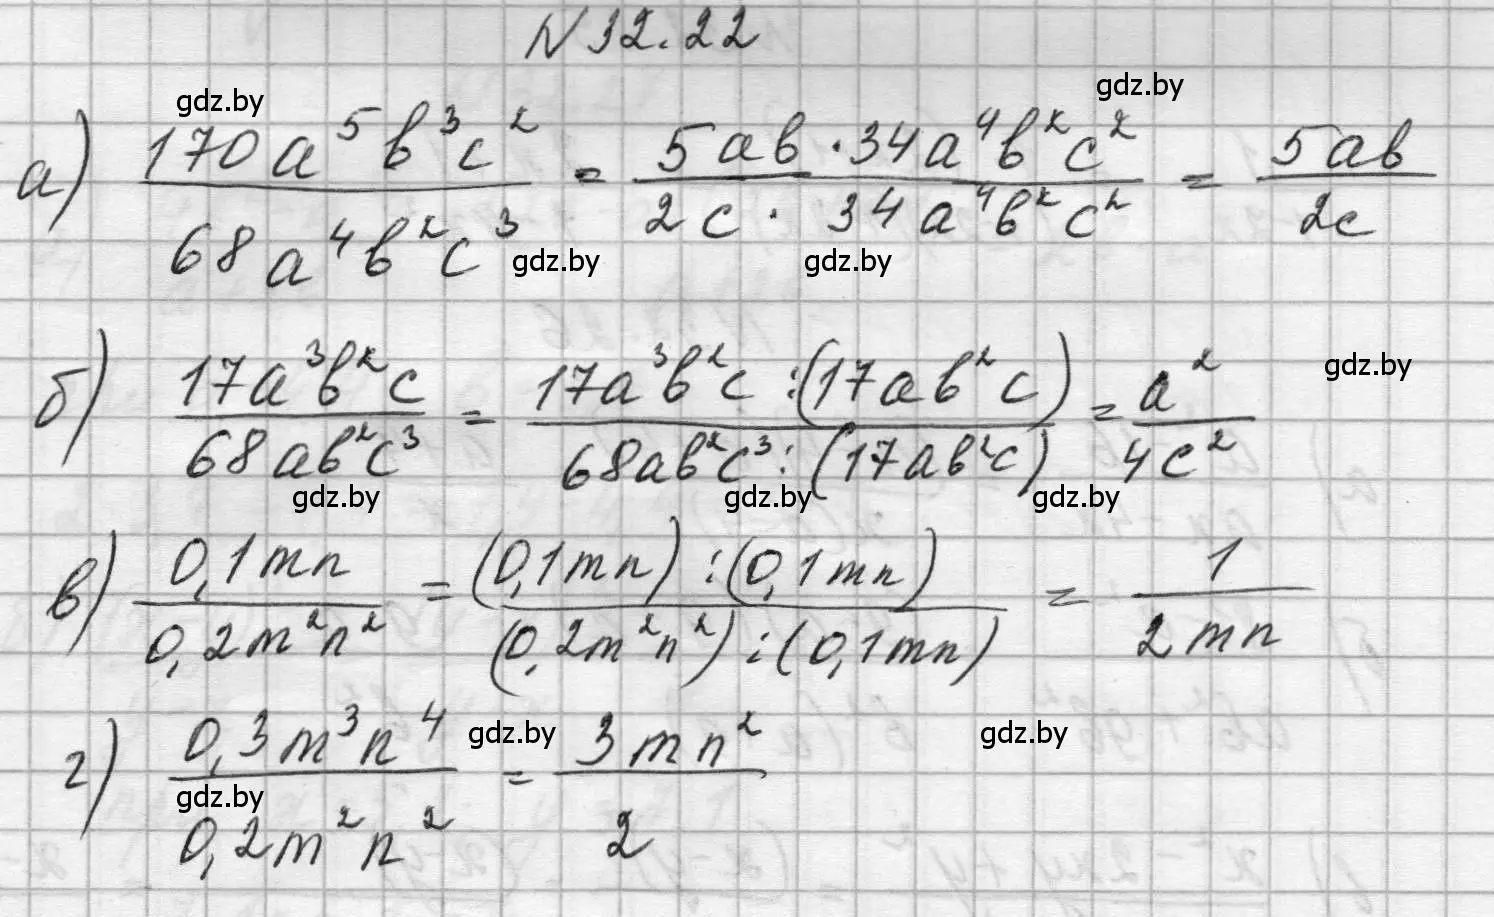 N 32.22
gdz.by gdz.by
а) 170a⁵b³c² / 68a⁴b²c³ = 5ab · 34a⁴b²c² / 2c · 34a⁴b²c² = 5ab / 2c
gdz.by gdz.by
б) 17a³b²c / 68ab²c³ = 17a³b²c : (17ab²c) / 68ab²c³ : (17ab²c) = a² / 4c²
gdz.by
gdz.by gdz.by gdz.by
в) 0,1mn / 0,2m²n² = (0,1mn) : (0,1mn) / (0,2m²n²) : (0,1mn) = 1 / 2mn
г) 0,3m³n⁴ / 0,2m²n² = 3mn² / 2
gdz.by gdz.by
gdz.by